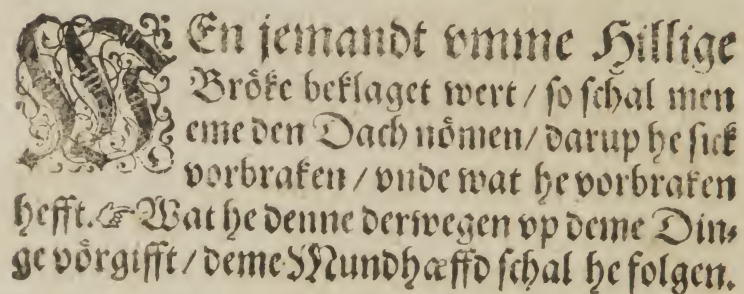 WEn jemandt vmme Hillige
Bröke beklaget wert / so schal men
eme den Dach nömen / darup he sick
vorbraken / vnde wat he vorbraken
hefft. ☞ Wat he denne derwegen vp deme Din⸗
ge vörgifft / deme Mundhæffd schal he folgen.